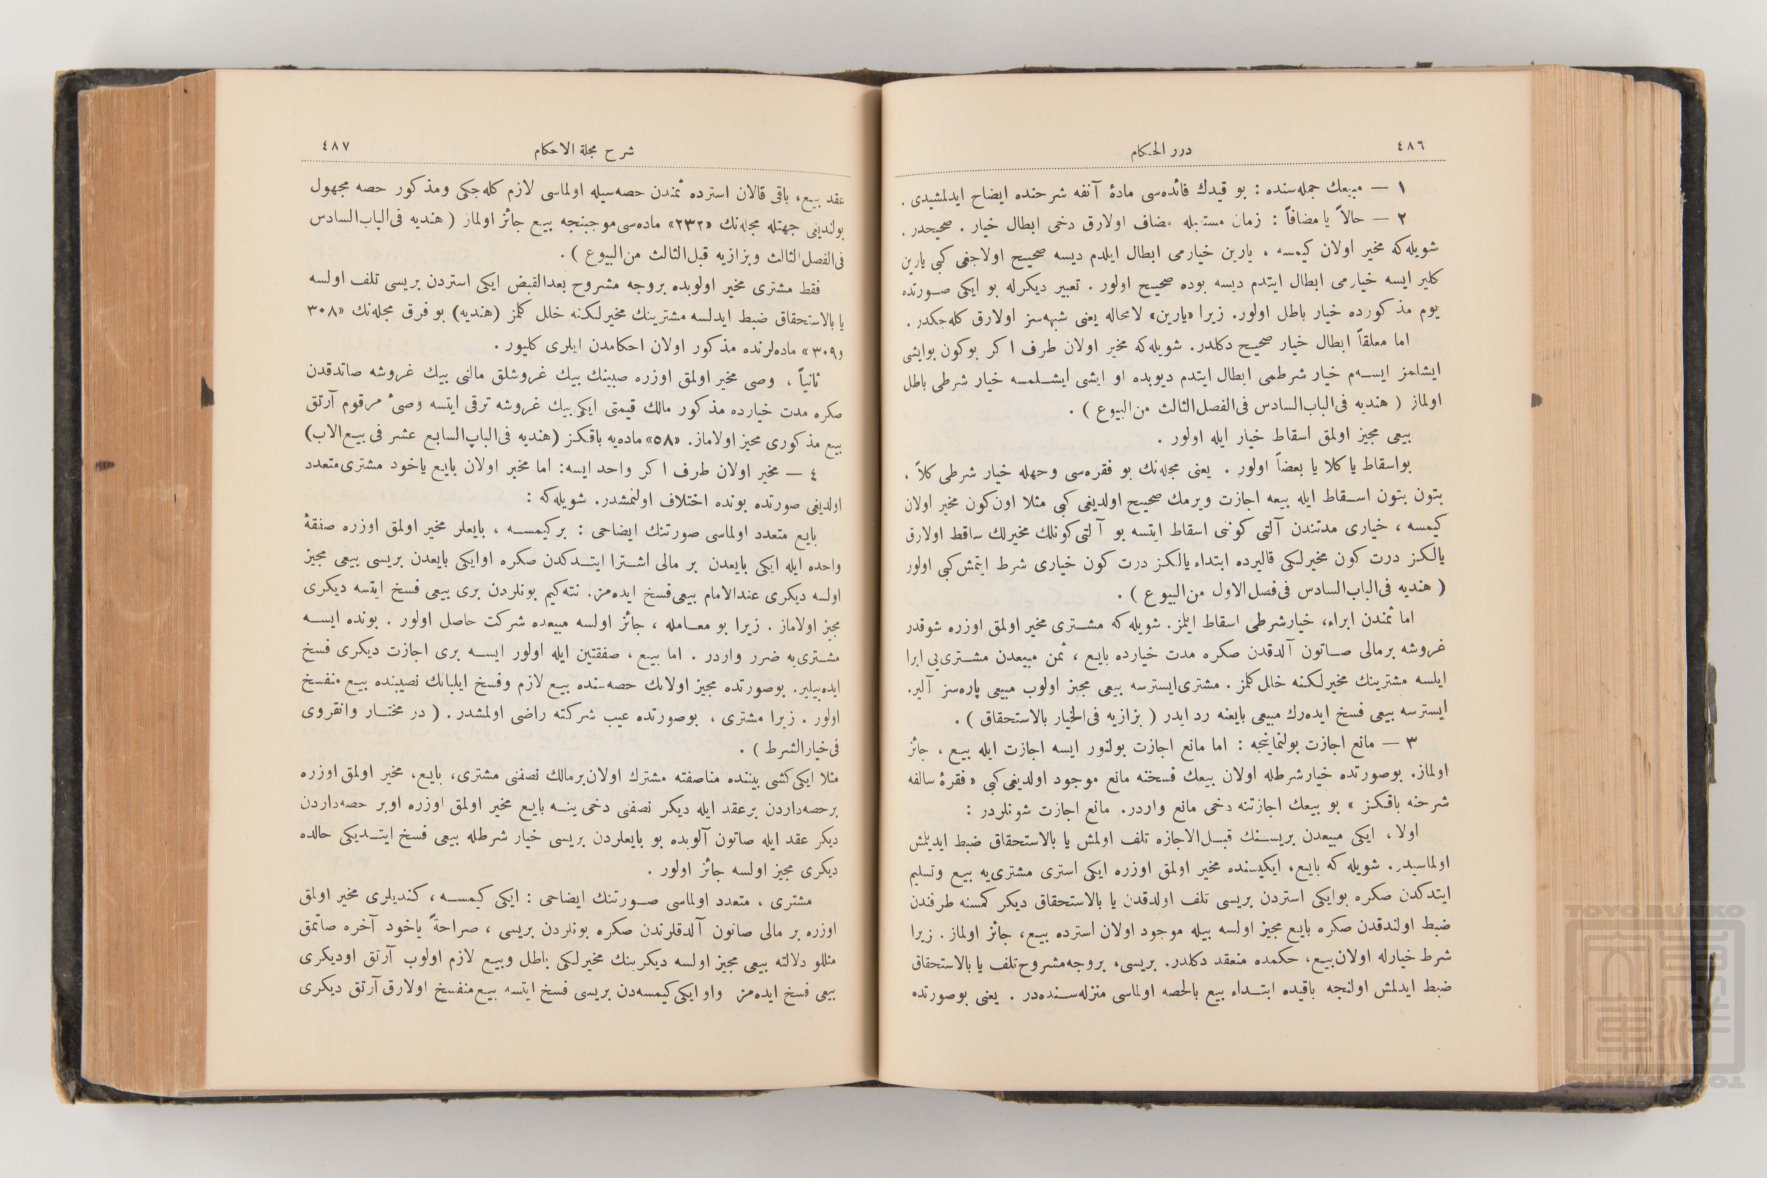 ٤٨٦
درر الحكام
١ — مبيعك جمله‌سنده : بو قيدك فائده‌سى مادۀ آنفه شرحنده ايضاح ايدلمشيدى .
٢ — حالاً يا مضافاً : زمان مستقبله مضاف اولارق دخى ابطال خيار . صحيحدر .
شويله‌كه مخير اولان كيمسه ، يارين خيارمى ابطال ايلدم ديسه صحيح اولاجغى كبى يارين
كلير ايسه خيارمى ابطال ايتدم ديسه بوده صحيح اولور . تعبير ديكرله بو ايكى صورتده
يوم مذكورده خيار باطل اولور. زيرا «يارين» لامحاله يعنى شبهه‌سز اولارق كله‌جكدر .
اما معلقاً ابطال خيار صحيح دكلدر. شويله‌كه مخير اولان طرف اكر بوكون بوايشى
ايشلمز ايسه‌م خيار شرطمى ابطال ايتدم ديوبده او ايشى ايشلمسه خيار شرطى باطل
اولماز ( هنديه فى‌الباب‌السادس فى‌الفصل‌الثالث من‌البيوع ) .
بيعى مجيز اولمق اسقاط خيار ايله اولور .
بواسقاط يا كلا يا بعضاً اولور . يعنى مجله‌نك بو فقره‌سى وجهله خيار شرطى كلاً ،
بتون بتون اسقاط ايله بيعه اجازت ويرمك صحيح اولديغى كبى مثلا اون‌كون مخير اولان
كيمسه ، خيارى مدتندن آلتى كوننى اسقاط ايتسه بو آلتى‌كونلك مخيرلك ساقط اولارق
يالكز درت كون مخيرلكى قاليرده ابتداء يالكز درت كون خيارى شرط ايتمش‌كبى اولور
( هنديه فى‌الباب‌السادس فى‌فصل‌الاول من‌البيوع ) .
اما ثمندن ابراء، خيارشرطى اسقاط ايلمز. شويله‌كه مشترى مخير اولمق اوزره شوقدر
غروشه برمالى صاتون آلدقدن صكره مدت خيارده بايع ، ثمن مبيعدن مشترى‌يى ابرا
ايلسه مشترينك مخيرلكنه خلل‌كلمز . مشترى‌ايسترسه بيعى مجيز اولوب مبيعى پاره‌سز آلير.
ايسترسه بيعى فسخ ايده‌رك مبيعى بايعنه رد ايدر ( بزازيه فى‌الخيار بالاستحقاق ) .
٣ — مانع اجازت بولنماينجه : اما مانع اجازت بولنور ايسه اجازت ايله بيع ، جائز
اولماز. بوصورتده خيارشرطله اولان بيعك فسخنه مانع موجود اولديغى‌كبى « فقرۀ سالفه
شرحنه باقكز » بو بيعك اجازتنه دخى مانع واردر. مانع اجازت شونلردر :
اولا ، ايكى مبيعدن بريسنك قبل‌الاجازه تلف اولمش يا بالاستحقاق ضبط ايديلمش
اولماسيدر. شويله كه بايع، ايكيسنده مخير اولمق اوزره ايكى استرى مشترى‌يه بيع وتسليم
ايتدكدن صكره بوايكى استردن بريسى تلف اولدقدن يا بالاستحقاق ديكر كمسنه طرفندن
ضبط اولندقدن صكره بايع مجيز اولسه بيله موجود اولان استرده بيع، جائز اولماز. زيرا
شرط خيارله اولان‌بيع، حكمده منعقد دكلدر. بريسى، بروجه‌مشروح‌تلف يا بالاستحقاق
ضبط ايدلمش اولنجه باقيده ابتداء بيع بالحصه اولماسى منزله‌سنده‌در . يعنى بوصورتده
٤٨٧
شرح مجلة الاحكام
عقد بيع، باقى قالان استرده ثمندن حصه‌سيله اولماسى لازم كله‌جكى ومذكور حصه مجهول
بولنديغى جهتله مجله‌نك «٢٣٢» ماده‌سى‌موجبنجه بيع جائز اولماز ( هنديه فى‌الباب‌السادس
فى‌الفصل‌الثالث وبزازيه قبل‌الثالث من‌البيوع ) .
فقط مشترى مخير اولوبده بروجه مشروح بعدالقبض ايكى استردن بريسى تلف اولسه
يا بالاستحقاق ضبط ايدلسه مشترينك مخيرلكنه خلل كلمز (هنديه) بو فرق مجله‌نك «٣٠٨
و٣٠٩» ماده‌لرنده مذكور اولان احكامدن ايلرى كليور .
ثانياً ، وصى مخير اولمق اوزره صبينك بيك غروشلق مالنى بيك غروشه صاتدقدن
صكره مدت خيارده مذكور مالك قيمتى ايكى‌بيك غروشه ترقى ايتسه وصىٔ مرقوم آرتق
بيع مذكورى مجيز اولاماز. «٥٨» ماده‌يه باقكز (هنديه فى‌الباب‌السابع عشر فى بيع‌الاب)
٤ — مخير اولان طرف اكر واحد ايسه: اما مخير اولان بايع ياخود مشترى‌متعدد
اولديغى صورتده بونده اختلاف اولنمشدر. شويله‌كه :
بايع متعدد اولماسى صورتنك ايضاحى : بركيمسه ، بايعلر مخير اولمق اوزره صفقۀ
واحده ايله ايكى بايعدن بر مالى اشترا ايتدكدن صكره اوايكى بايعدن بريسى بيعى مجيز
اولسه ديكرى عندالامام بيعى‌فسخ ايده‌مز. نته‌كيم بونلردن برى بيعى فسخ ايتسه ديكرى
مجيز اولاماز . زيرا بو معامله ، جائز اولسه مبيعده شركت حاصل اولور . بونده ايسه
مشترى‌يه ضرر واردر . اما بيع ، صفقتين ايله اولور ايسه برى اجازت ديكرى فسخ
ايده‌بيلير. بوصورتده مجيز اولانك حصه‌سنده بيع لازم وفسخ ايليانك نصيبنده بيع منفسخ
اولور . زيرا مشترى ، بوصورتده عيب شركته راضى اولمشدر. ( در مختار وانقروى
فى‌خيارالشرط ) .
مثلا ايكى‌كشى بيننده مناصفته مشترك اولان‌برمالك نصفنى مشترى، بايع، مخير اولمق اوزره
برحصه‌داردن برعقد ايله ديكر نصفنى دخى ينه بايع مخير اولمق اوزره اوبر حصه‌داردن
ديكر عقد ايله صاتون آلوبده بو بايعلردن بريسى خيار شرطله بيعى فسخ ايتديكى حالده
ديكرى مجيز اولسه جائز اولور .
مشترى ، متعدد اولماسى صورتنك ايضاحى : ايكى كيمسه ، كنديلرى مخير اولمق
اوزره بر مالى صاتون آلدقلرندن صكره بونلردن بريسى ، صراحةً ياخود آخره صاتمق
مثللو دلالته بيعى مجيز اولسه ديكرينك مخيرلكى باطل وبيع لازم اولوب آرتق اوديكرى
بيعى فسخ ايده‌مز واو ايكى‌كيمسه‌دن بريسى فسخ ايتسه بيع‌منفسخ اولارق آرتق ديكرى
TOYO BUNKO